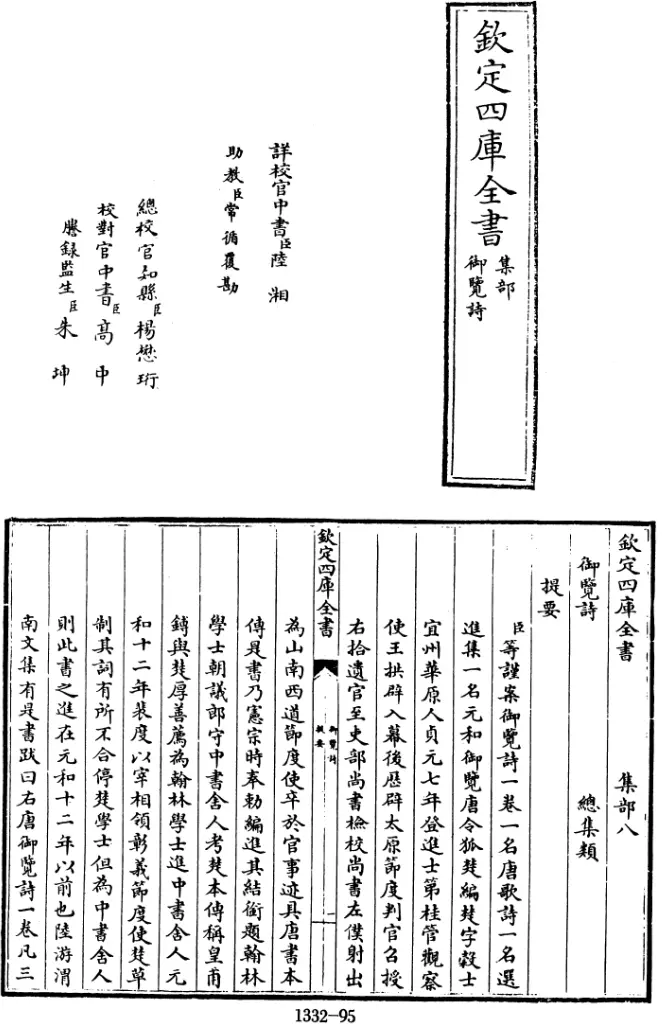 欽定四庫全書
集部
御覽詩
詳校官中書臣陸湘
助教臣常循覆勘
總校官知縣臣楊懋珩
校對官中書臣高中
謄錄監生臣朱坤
欽定四庫全書 集部八
御覽詩 總集類
提要
臣等謹案御覽詩一卷一名唐歌詩一名選
進集一名元和御覽唐令狐楚編楚字殼士
宜州華原人貞元七年登進士第桂管觀察
使王拱辟入幕後歷辟太原節度判官召授
右拾遺官至吏部尚書檢校尚書左僕射出
欽定四庫全書
御覽詩
提要
一
為山南西道節度使卒於官事迹具唐書本
傳是書乃憲宗時奉勅編進其結銜題翰林
學士朝議郎守中書舍人考楚本傳稱皇甫
鎛與楚厚善薦為翰林學士進中書舍人元
和十二年裴度以宰相領彰義節度使楚草
制其詞有所不合停楚學士但為中書舍人
則此書之進在元和十二年以前也陸游渭
南文集有是書跋曰右唐御覽詩一卷凡三
1332-95